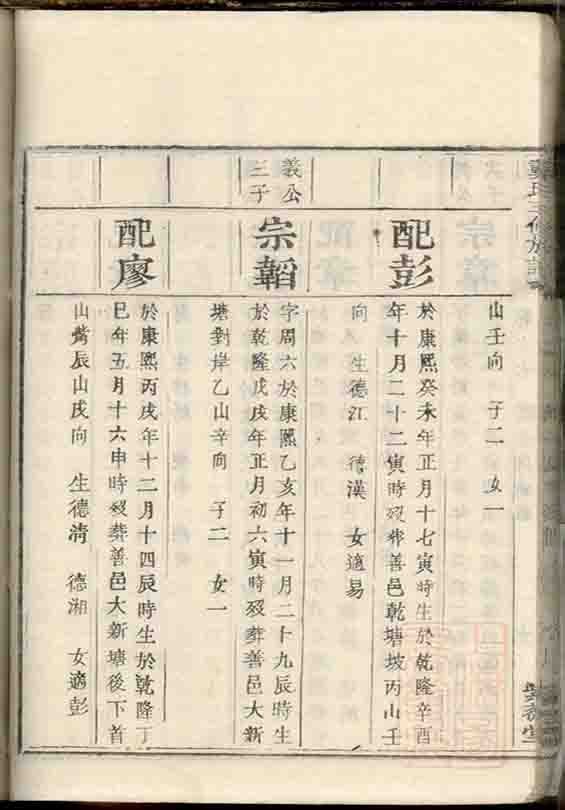 山壬向　子二　女一
配彭
於康熙癸未年正月十七寅時生於乾隆辛酉
年十月二十二寅時殁葬善邑乾塘坡丙山壬
向　生德江　德漢　女適易
義公
三子
宗韜
字周六於康熙乙亥年十一月二十九辰時生
於乾隆戊戌年正月初六寅時殁葬善邑大新
塘對岸乙山辛向　子二　女一
配廖
於康熙丙戌年十二月十四辰時生於乾隆丁
巳年五月十六申時殁葬善邑大新塘後下首
山嘴辰山戌向　生德清　德湘　女適彭